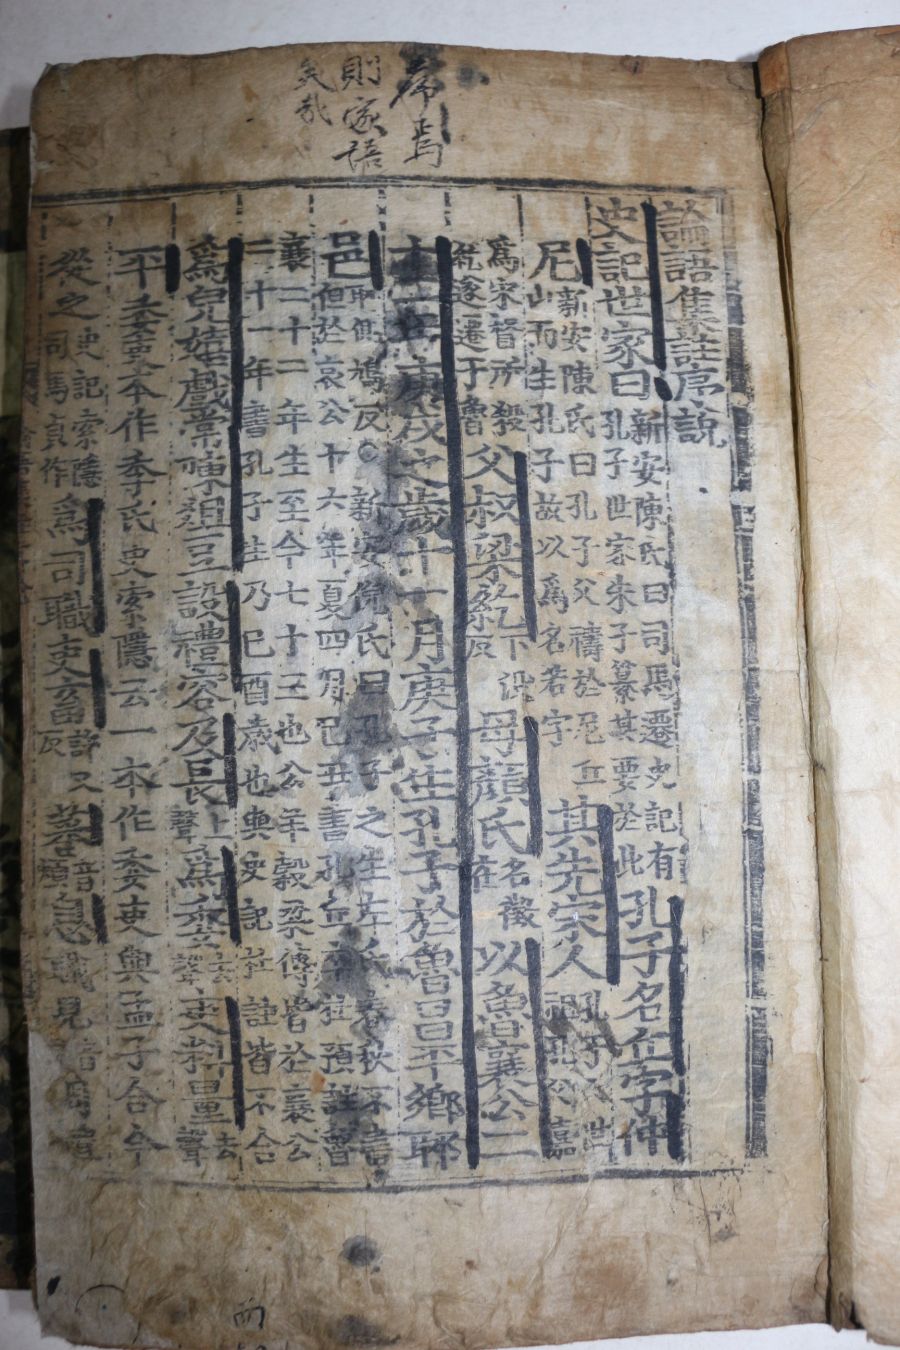 序焉
則家語
矣哉
論語集註序說
史記世家曰 新安陳氏曰司馬遷史記有孔子世家朱子纂其要於此 孔子名丘字仲
尼 新安陳氏曰孔子父禱於尼丘山而生孔子故以爲名若字 其先宋人
爲宋督所殺 遂遷于魯 父叔梁紇 下沒反 母顏氏 名徵在 以魯襄公二
十二年庚戌之歲十一月庚子生孔子於魯昌平鄕陬
邑 新安倪氏曰孔子之生 但於哀公十六年夏四月己丑書孔丘卒 杜預註
襄二十二年生至今七十三也公羊穀梁傳皆於襄公
二十一年書孔子生乃己酉歲也與史記 註皆不合
爲兒嬉戲常陳俎豆設禮容及長 上聲 爲委 去聲 吏料量 去聲
平 委吏本作季氏史索隱云一本作委吏與孟子合今
從之 史記索隱司馬貞作 爲司職吏畜 許又反 蕃 音煩 息
而